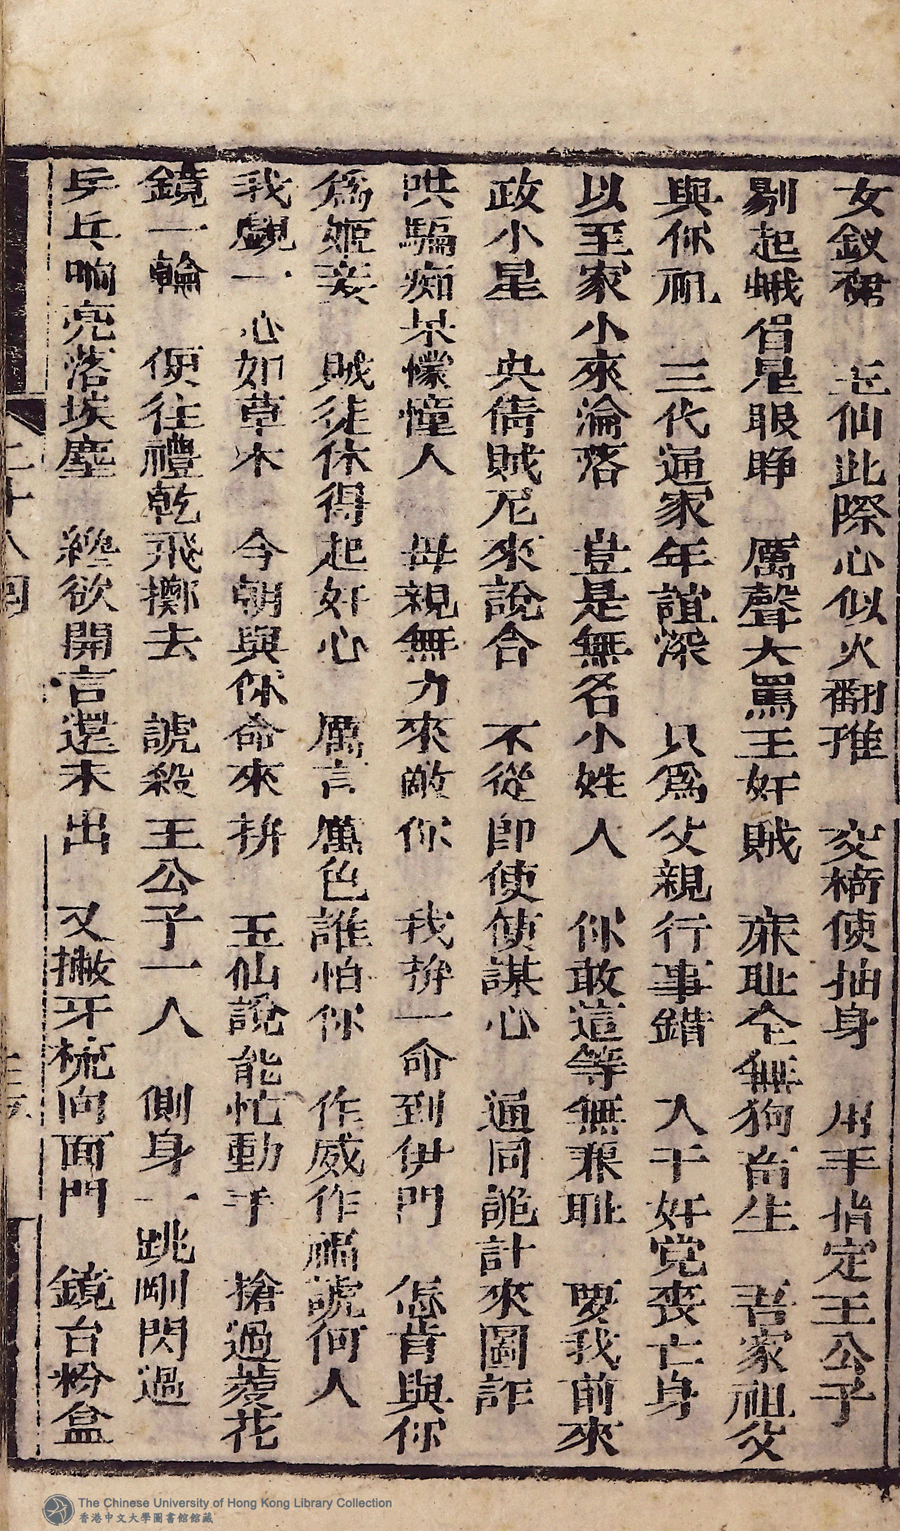 女釵裙　玉仙此際心似火翻推　交椅使抽身　用手指定王公子
剔起蛾眉是眼睜　厲聲大罵王奸賊　亷耻全無狗畜生　吾家祖父
與你爺　三代通家年誼深　只為父親行事錯　入干奸党喪亡身
以至家小來淪落　豈是無名小姓人　你敢這等無亷耻　要我前來
政小星　央倩賊尼來說合　不從即使使謀心　通同詭計來圖詐
哄騙痴呆懞憧人　母親無力來敵你　我拚一命到伊門　怎肯與你
為姬妾　賊徒休得起奸心　厲言厲色誰怕你　作威作福諕何人
我覷一心如草木　今朝與你命來拚　玉仙說能忙動手　搶過菱花
鏡一輪　便往禮乾飛擲去　諕殺王公子一人　側身一跳剛閃過
乒乓响亮落埃塵　纔欲開言還未出　又撇牙梳向面門　鏡台粉盒
二十八回
The Chinese University of Hong Kong Library Collection
香港中文大學圖書館館藏